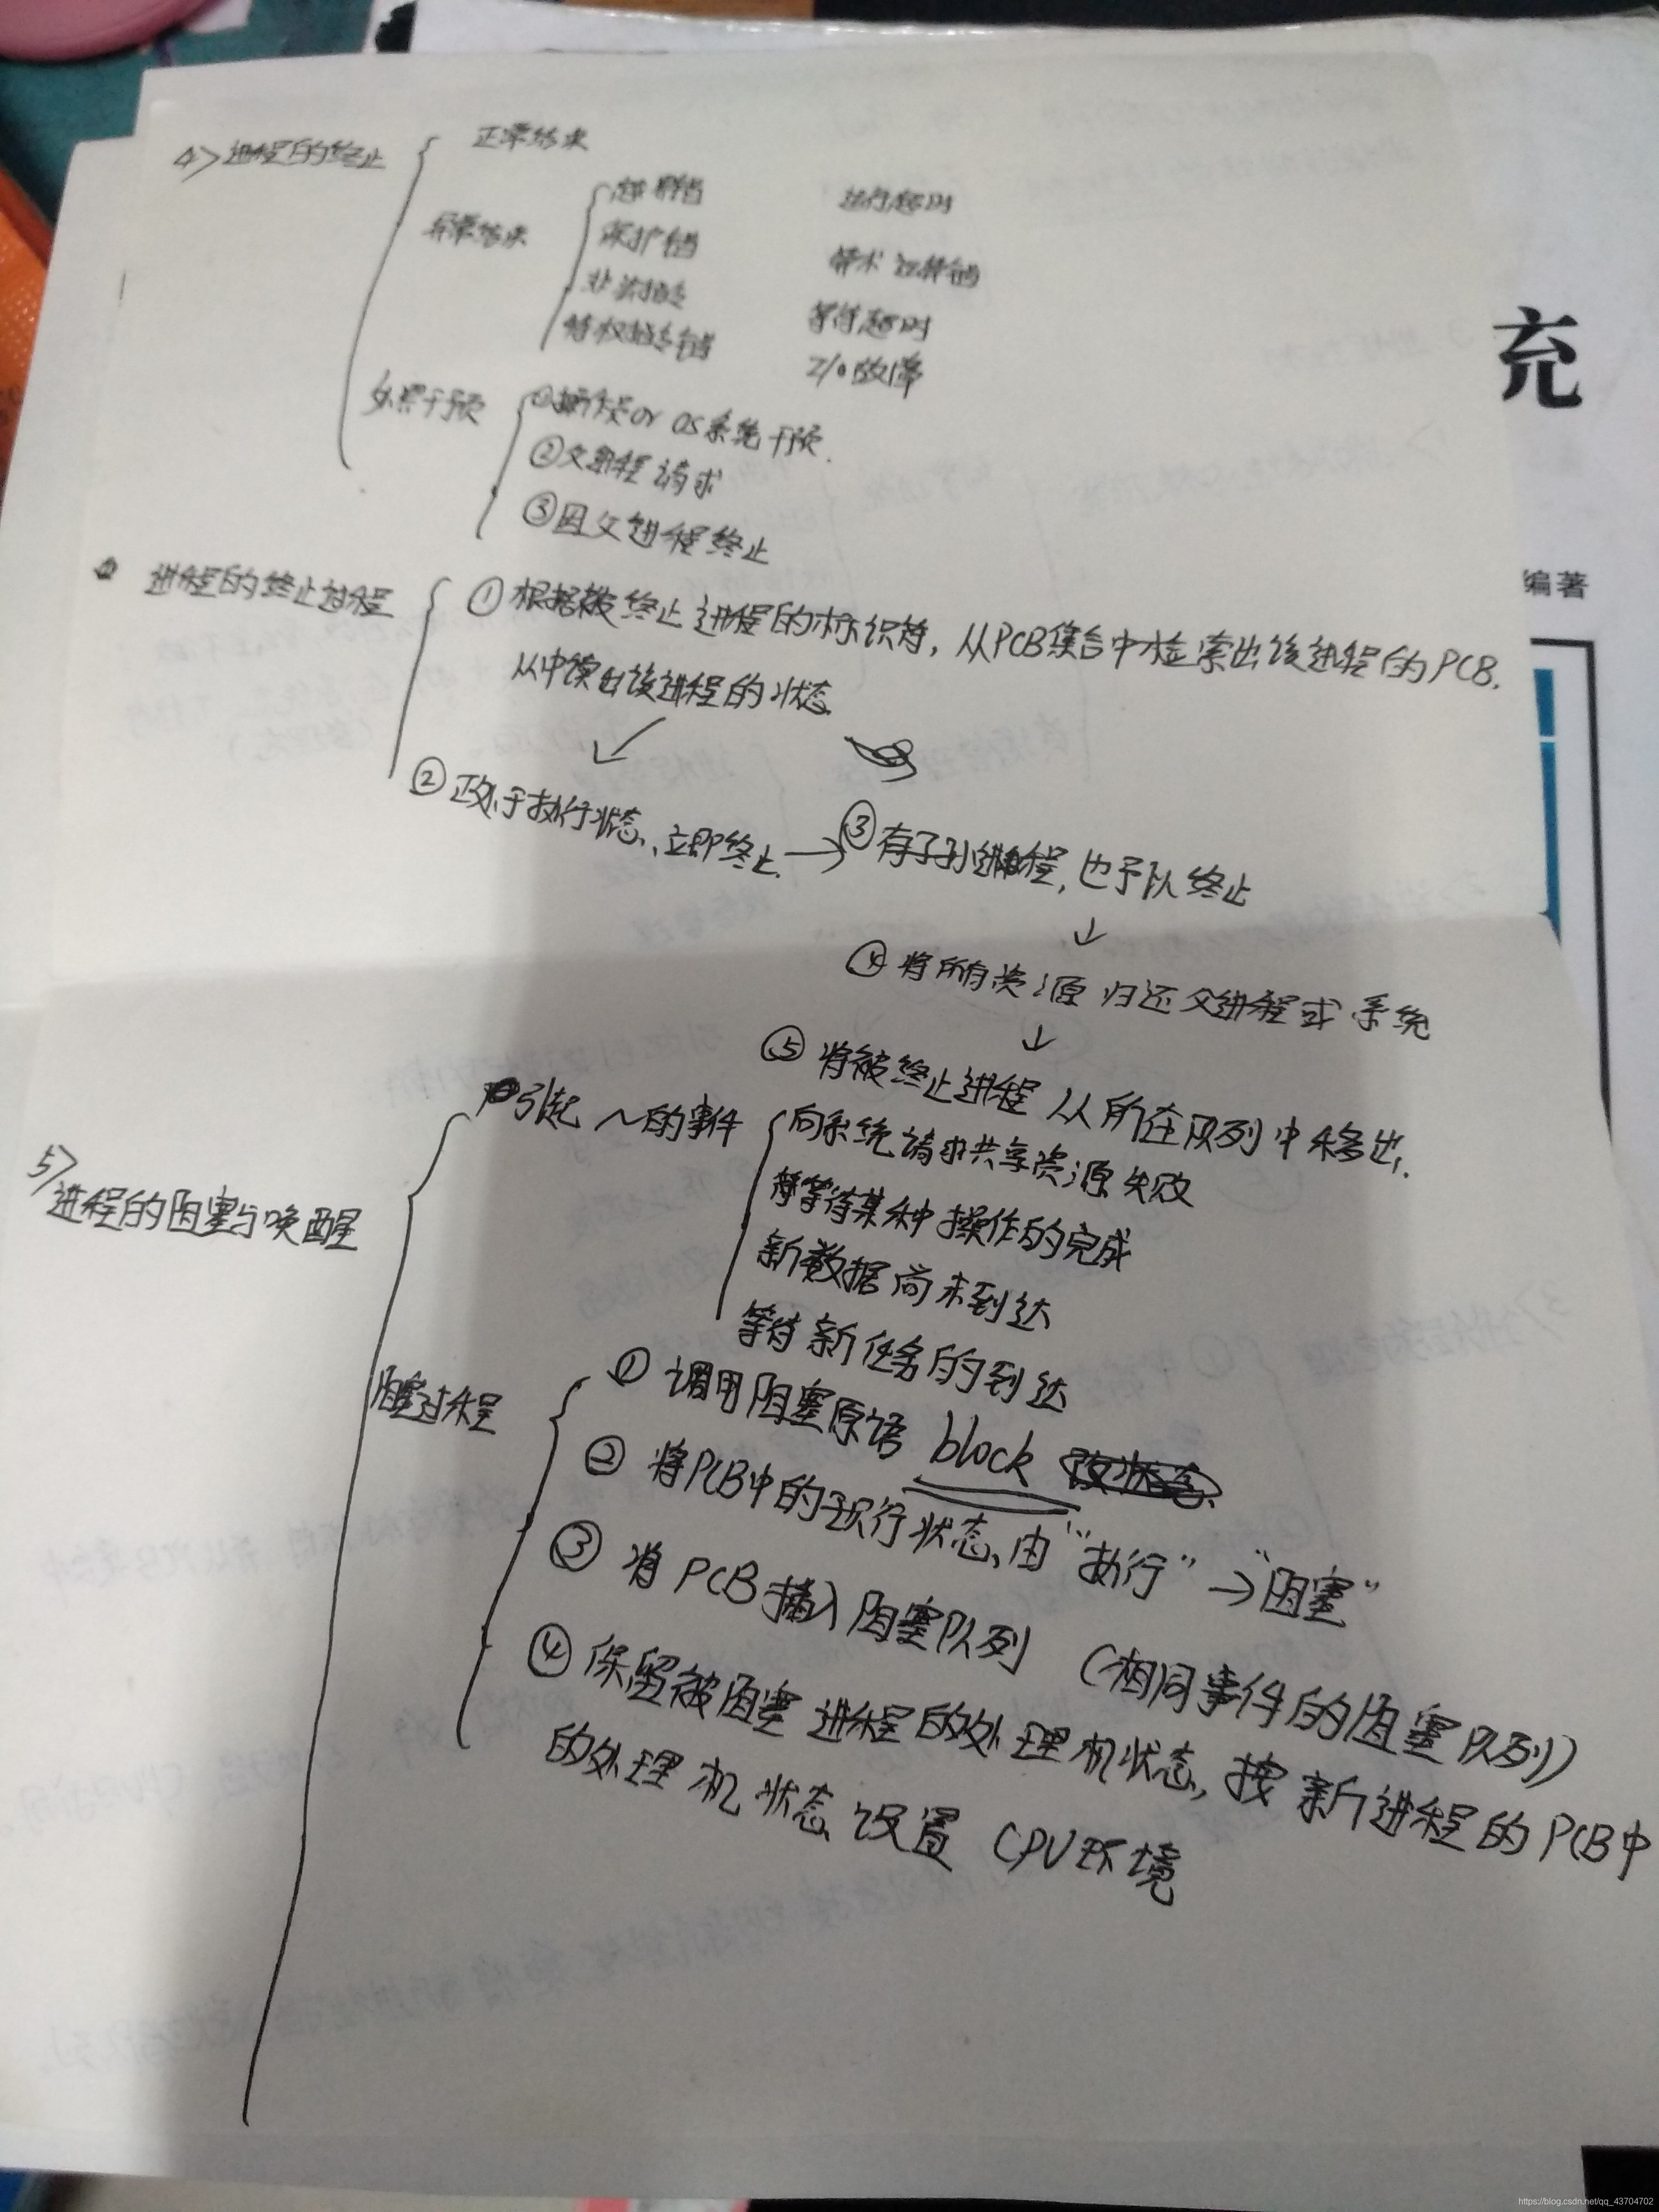 4> 进程的终止
正常结束
异常结束
越界错 运行超时
保护错 算术运算错
非法指令 等待超时
特权指令错 I/O故障
外界干预
①操作员or OS系统干预.
②父进程请求
③因父进程终止
进程的终止过程
①根据被终止进程的标识符，从PCB集合中检索出该进程的PCB.
从中读出该进程的状态
②正处于执行状态,立即终止.→③有子孙进程,也予以终止
↓
④将所有资源归还父进程或系统
↓
⑤将被终止进程从所在队列中移出,.
5>
进程的阻塞与唤醒
引起~的事件
向系统请求共享资源失败
等待某种操作的完成
新数据尚未到达
等待新任务的到达
阻塞过程
①调用阻塞原语 block
②将PCB中的现行状态、由“执行”→“阻塞”
③将PCB插入阻塞队列 (相同事件的阻塞队列)
④保留被阻塞进程的处理机状态,按新进程的PCB中
的处理机状态设置CPU环境
充
编著
https://blog.csdn.net/qq_43704702